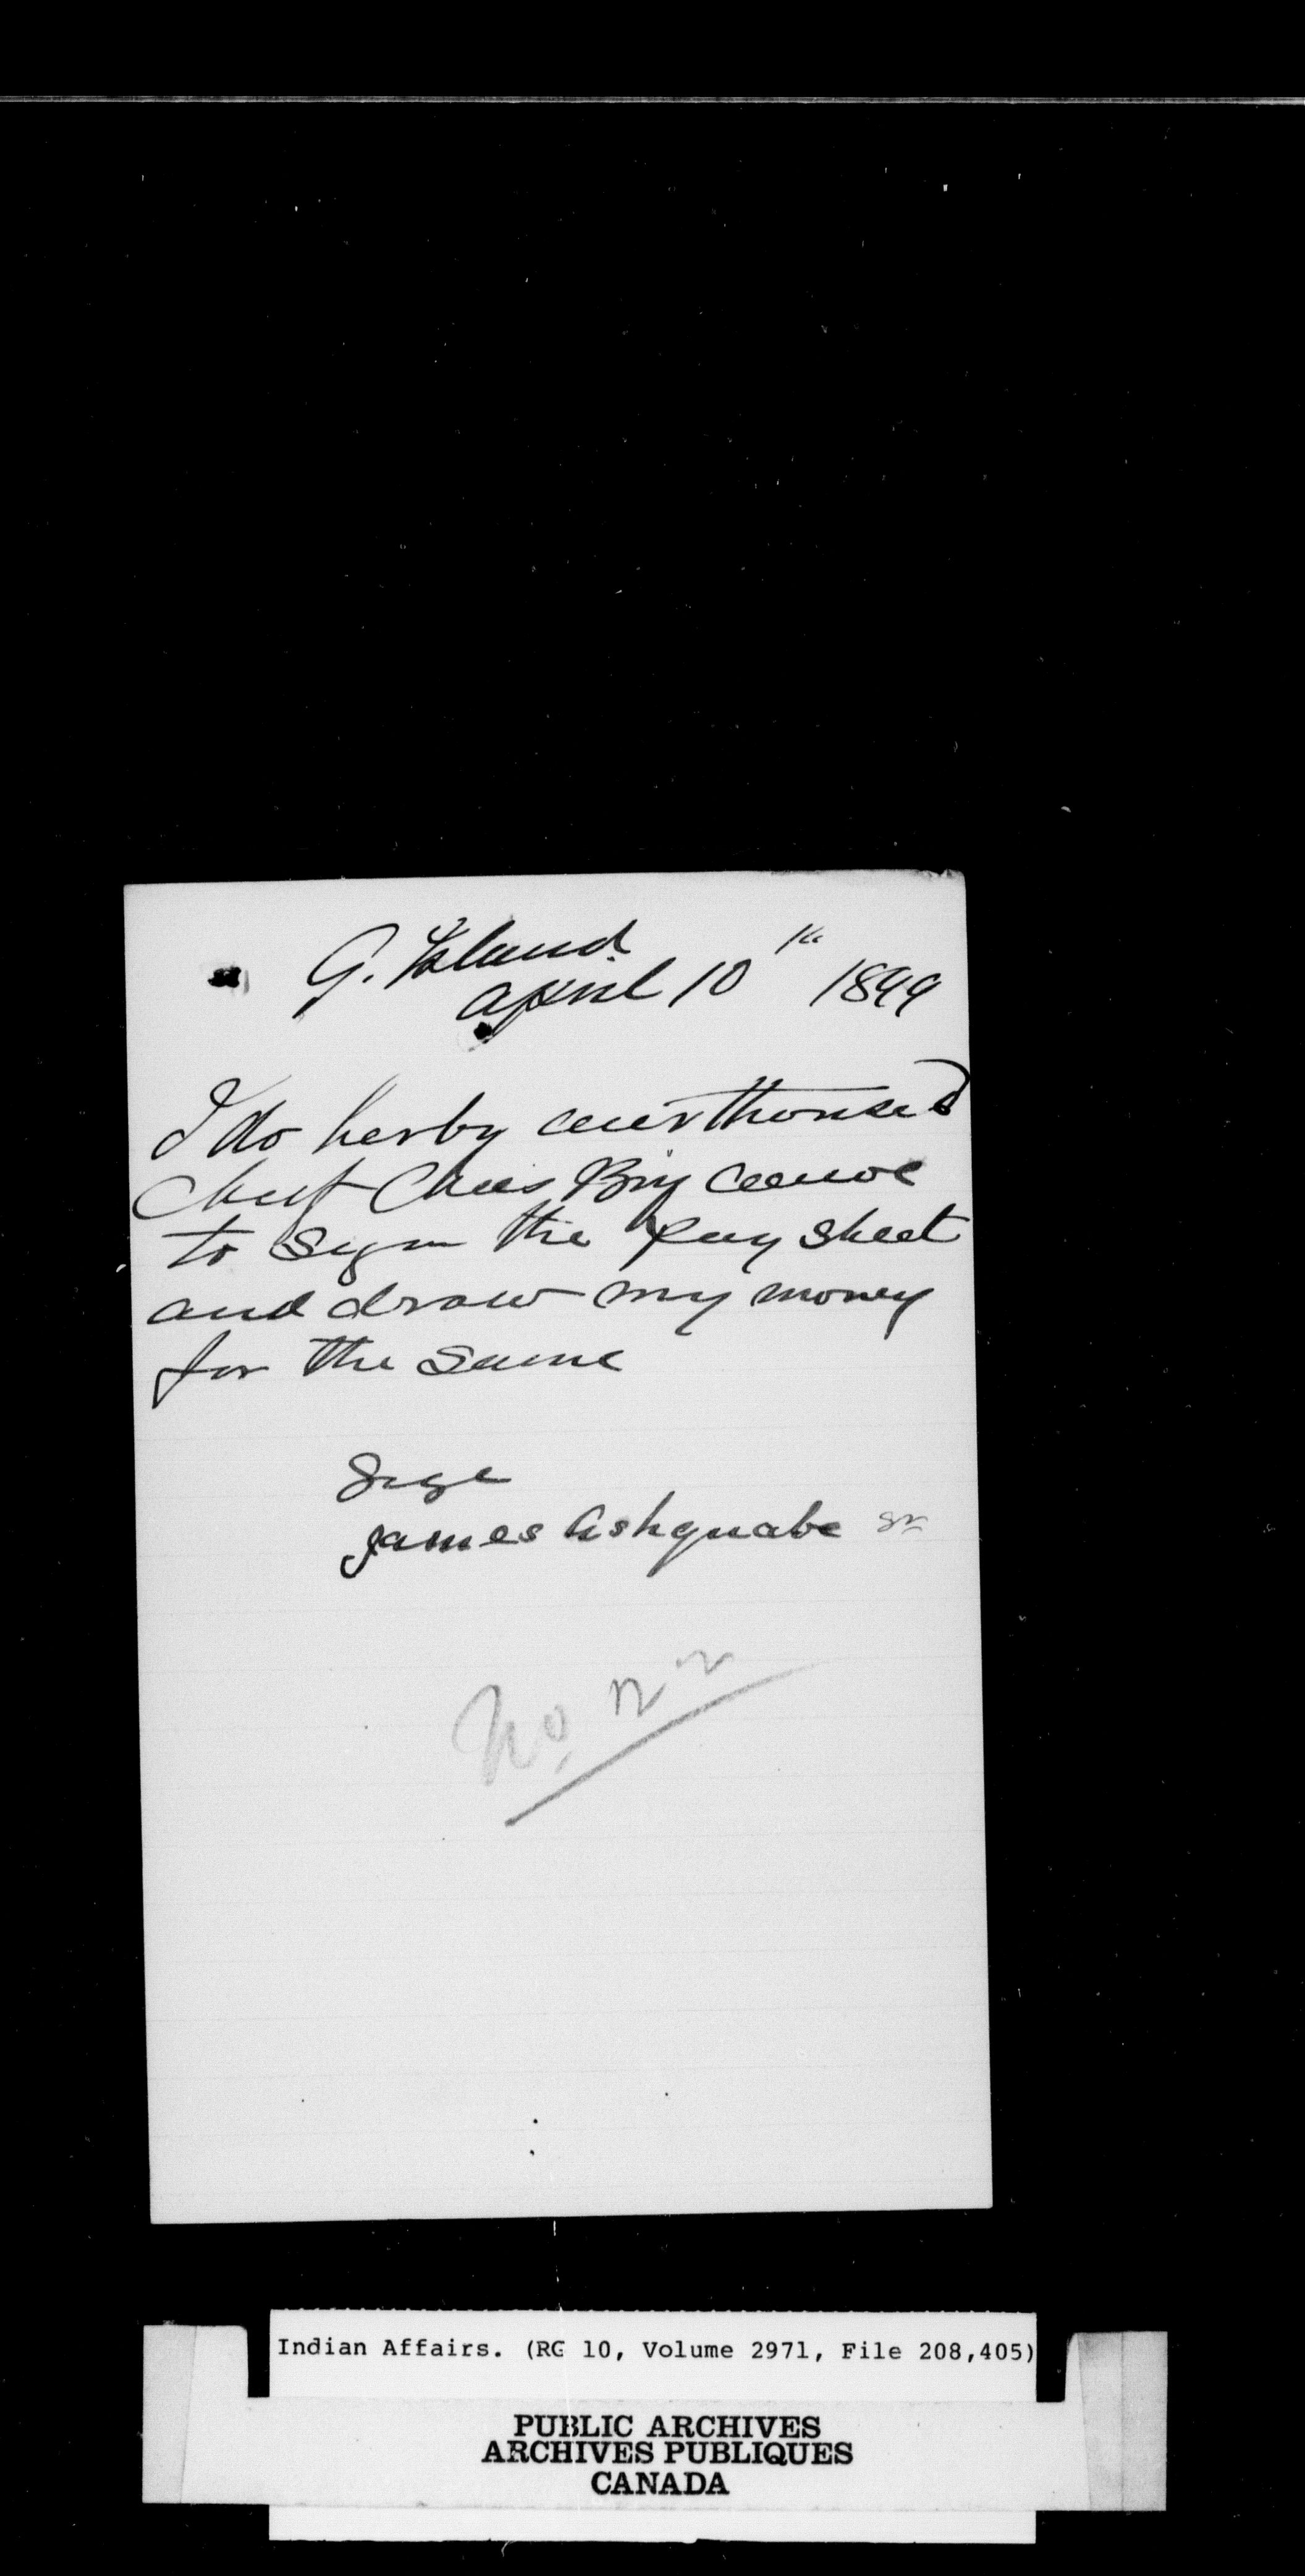 G. Island
April 10th 1899
I do herby authorised
Chief Chas Big Canoe
to sign the pay sheet
and draw my money
for the same
James Ashquabe sr
No. 12
Indian Affairs. (RG 10, Volume 2971, File 208,405)
PUBLIC ARCHIVES
ARCHIVES PUBLIQUES
CANADA